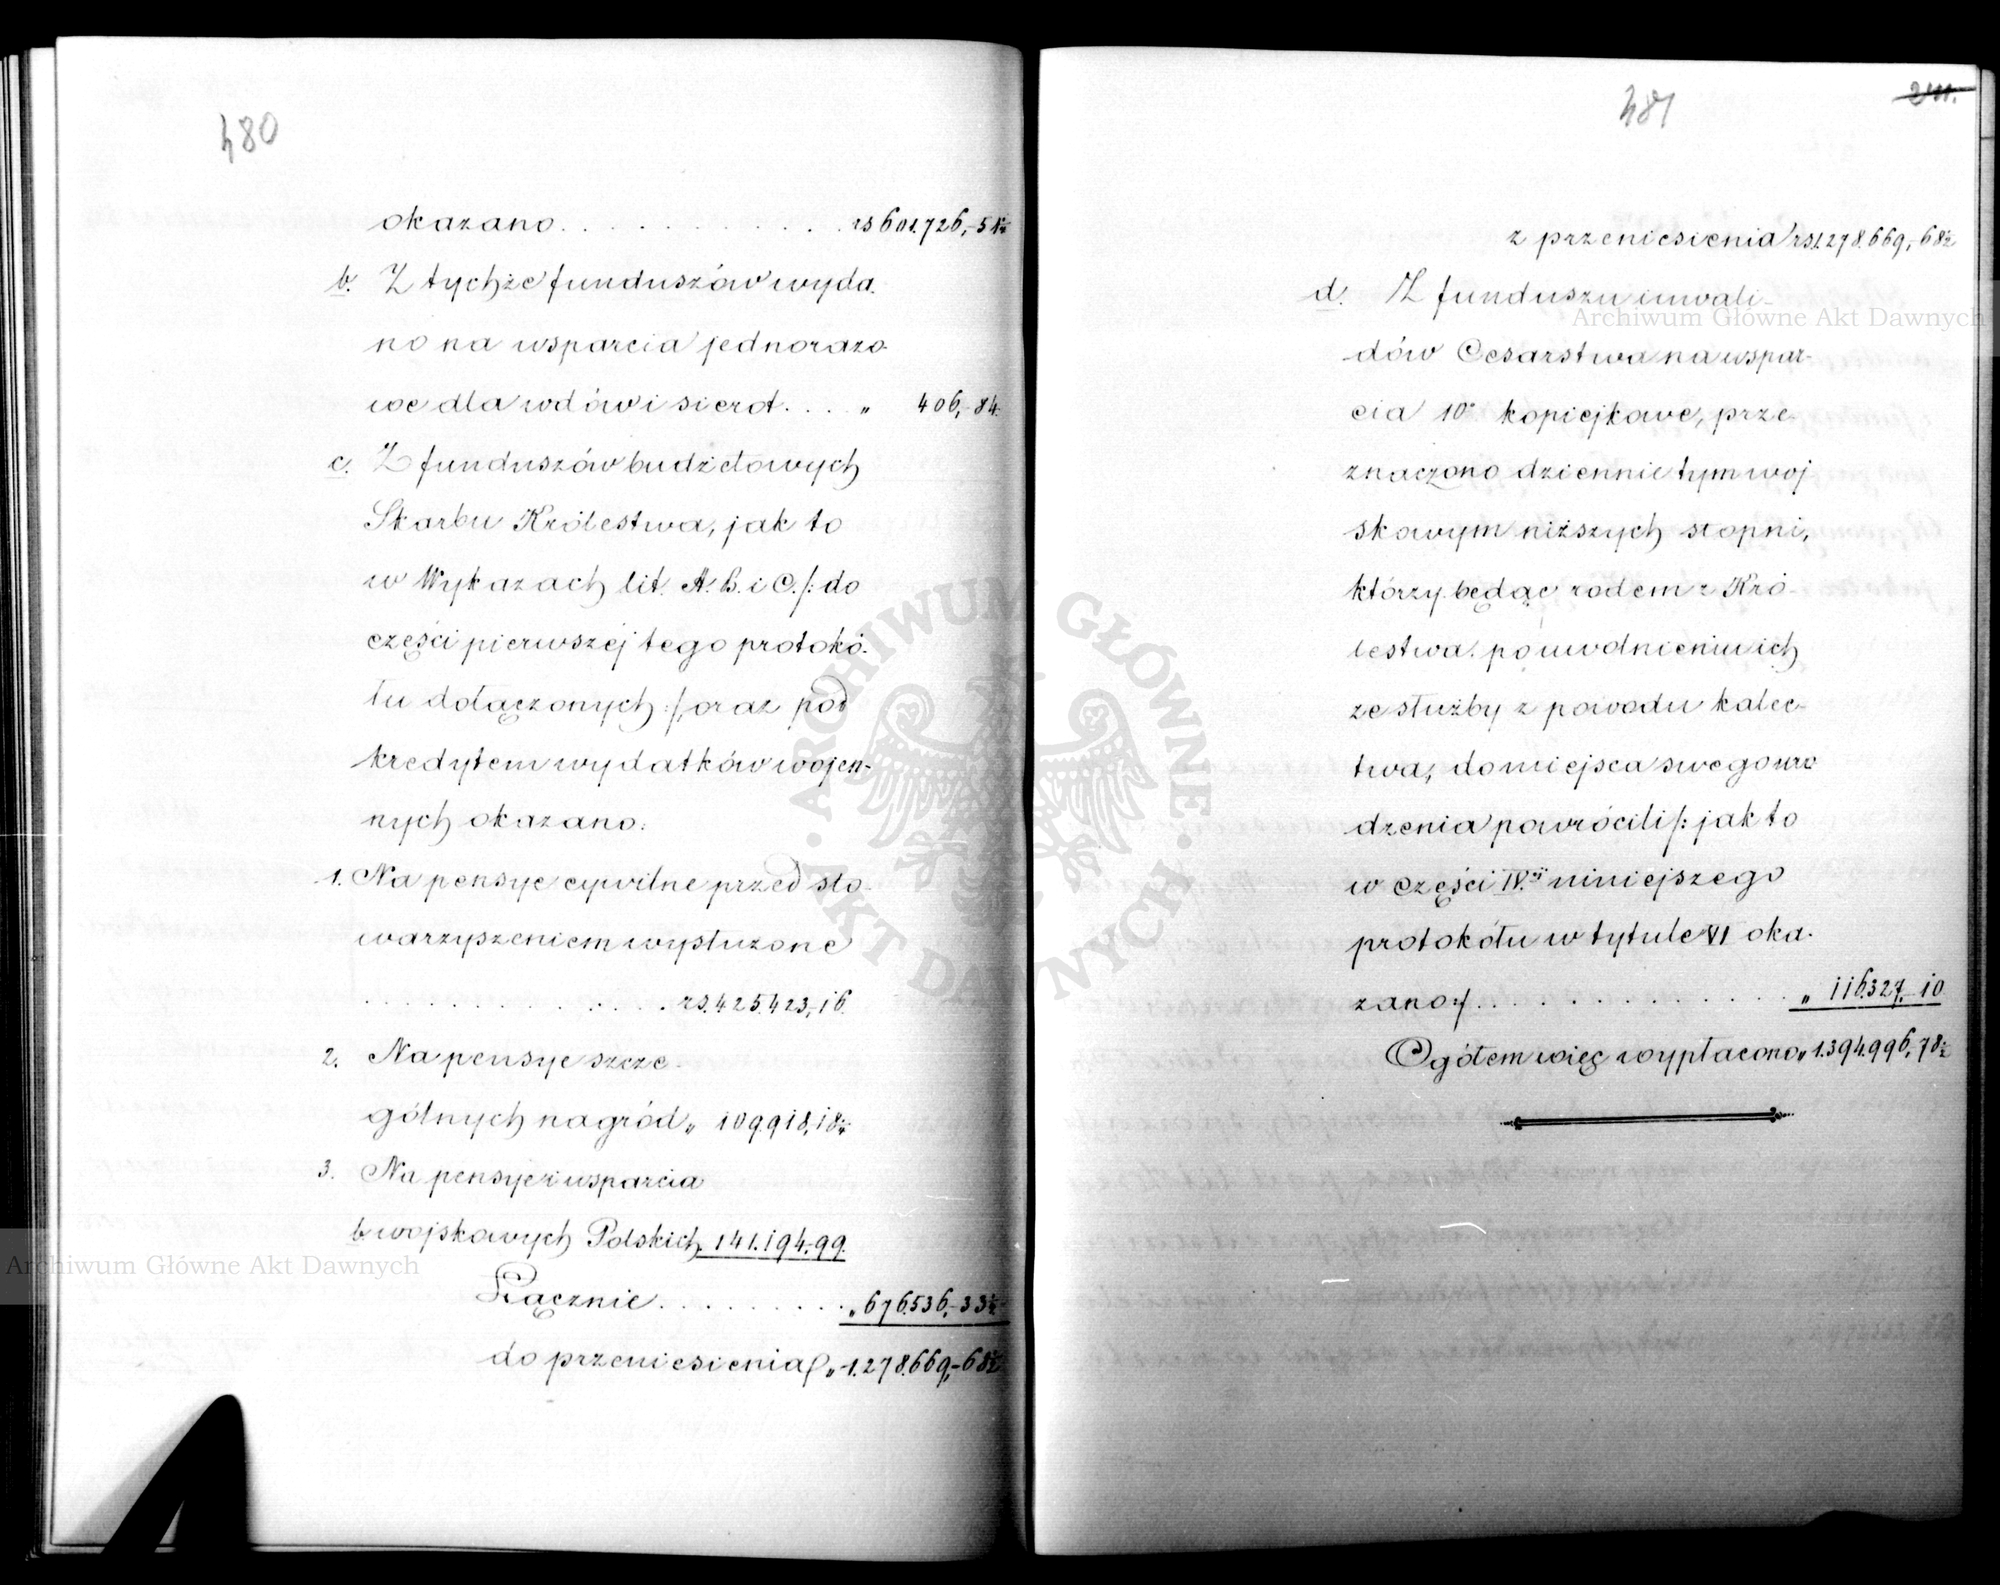 480
okazano . . . . . . . . . . . . rs 601.726,-51½
b. Z tychże funduszów wyda-
no na wsparcia jednorazo-
we dla wdów i sierot . . . „ 406,-84.
c. Z funduszów budżetowych
Skarbu Królestwa, jak to
w Wykazach lit. A. B. i C. /: do
części pierwszéj tego protokó-
łu dołączonych :/ oraz pod
kredytem wydatków wojen-
nych okazano:
1. Na pensye cywilne przed sto-
warzyszeniem wysłużone
. . . . . . . . . . . . rs. 425.423,-16.
2. Na pensye szcze-
gólnych nagród „ 109.918,18½
3. Na pensye i wsparcia
b. wojskowych Polskich 141.194,-99.
Łącznie . . . . . . . . . „ 676.536,-33½
do przeniesienia „ 1.278.669,-68½
481
241.
z przeniesienia rs 1.278.669,-68½
d. Z funduszu inwali-
dów Cesarstwa na wspar-
cia 10º kopiejkowe, prze-
znaczono dziennie tym woj
skowym niższych stopni,
którzy będąc rodem z Kró-
lestwa po uwolnieniu ich
ze służby z powodu kalec-
twa, do miejsca swego uro
dzenia powrócili /: jak to
w części IV.éj niniejszego
protokółu w tytule VI oka-
zano :/ . . . . . . . . . . . . „ 116.327,-10
Ogółem więc wypłacono „ 1.394.996,-78½
Archiwum Główne Akt Dawnych
Archiwum Główne Akt Dawnych
ARCHIWUM GŁÓWNE · AKT DAWNYCH ·